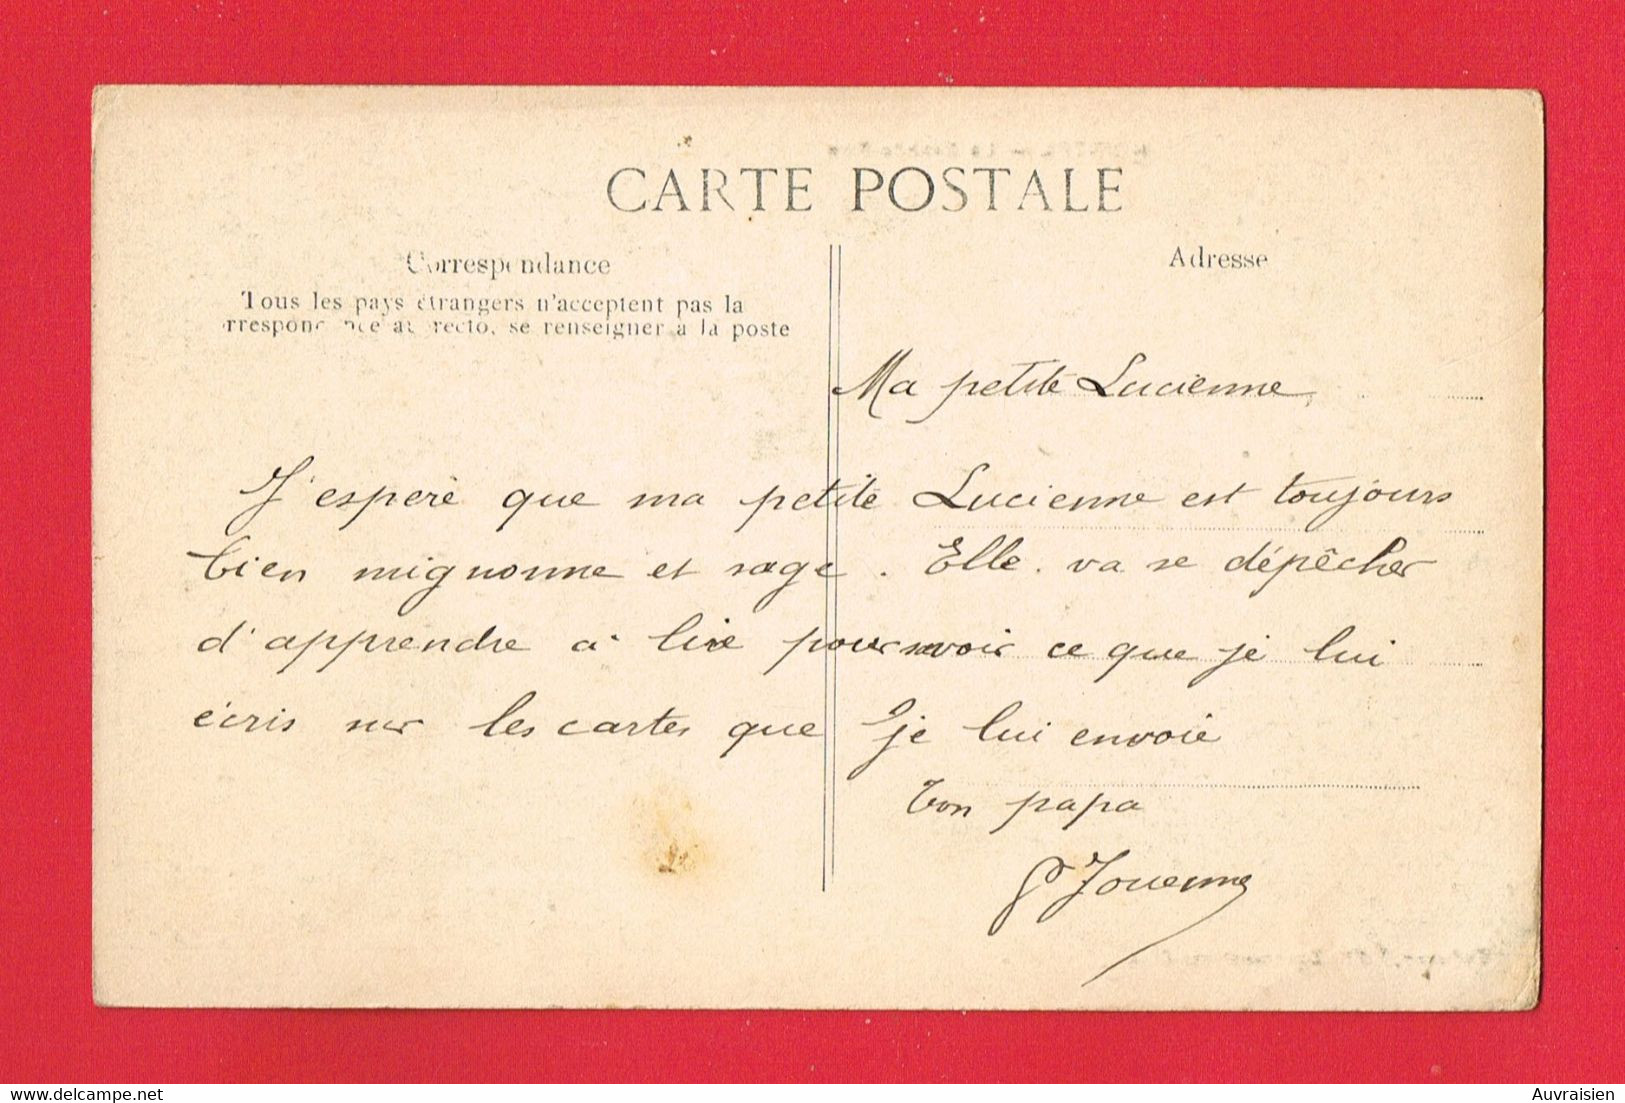 CARTE POSTALE
Correspondance
Adresse
Tous les pays étrangers n'acceptent pas la
rrespondance au recto, se renseigner à la poste
Ma petite Lucienne,
J'espère que ma petite Lucienne est toujours
bien mignonne et sage. Elle va se dépêcher
d'apprendre à lire pour savoir ce que je lui
écris sur les cartes que je lui envoie
Ton papa
Jouenne
delcampe.net
Auvraisien